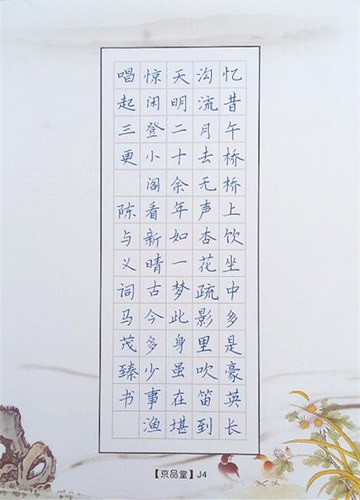 忆昔午桥桥上饮坐中多是豪英长
沟流月去无声杏花疏影里吹笛到
天明二十余年如一梦此身虽在堪
惊闲登小阁看新晴古今多少事渔
唱起三更 陈与义词马茂臻书
【京品堂】J4